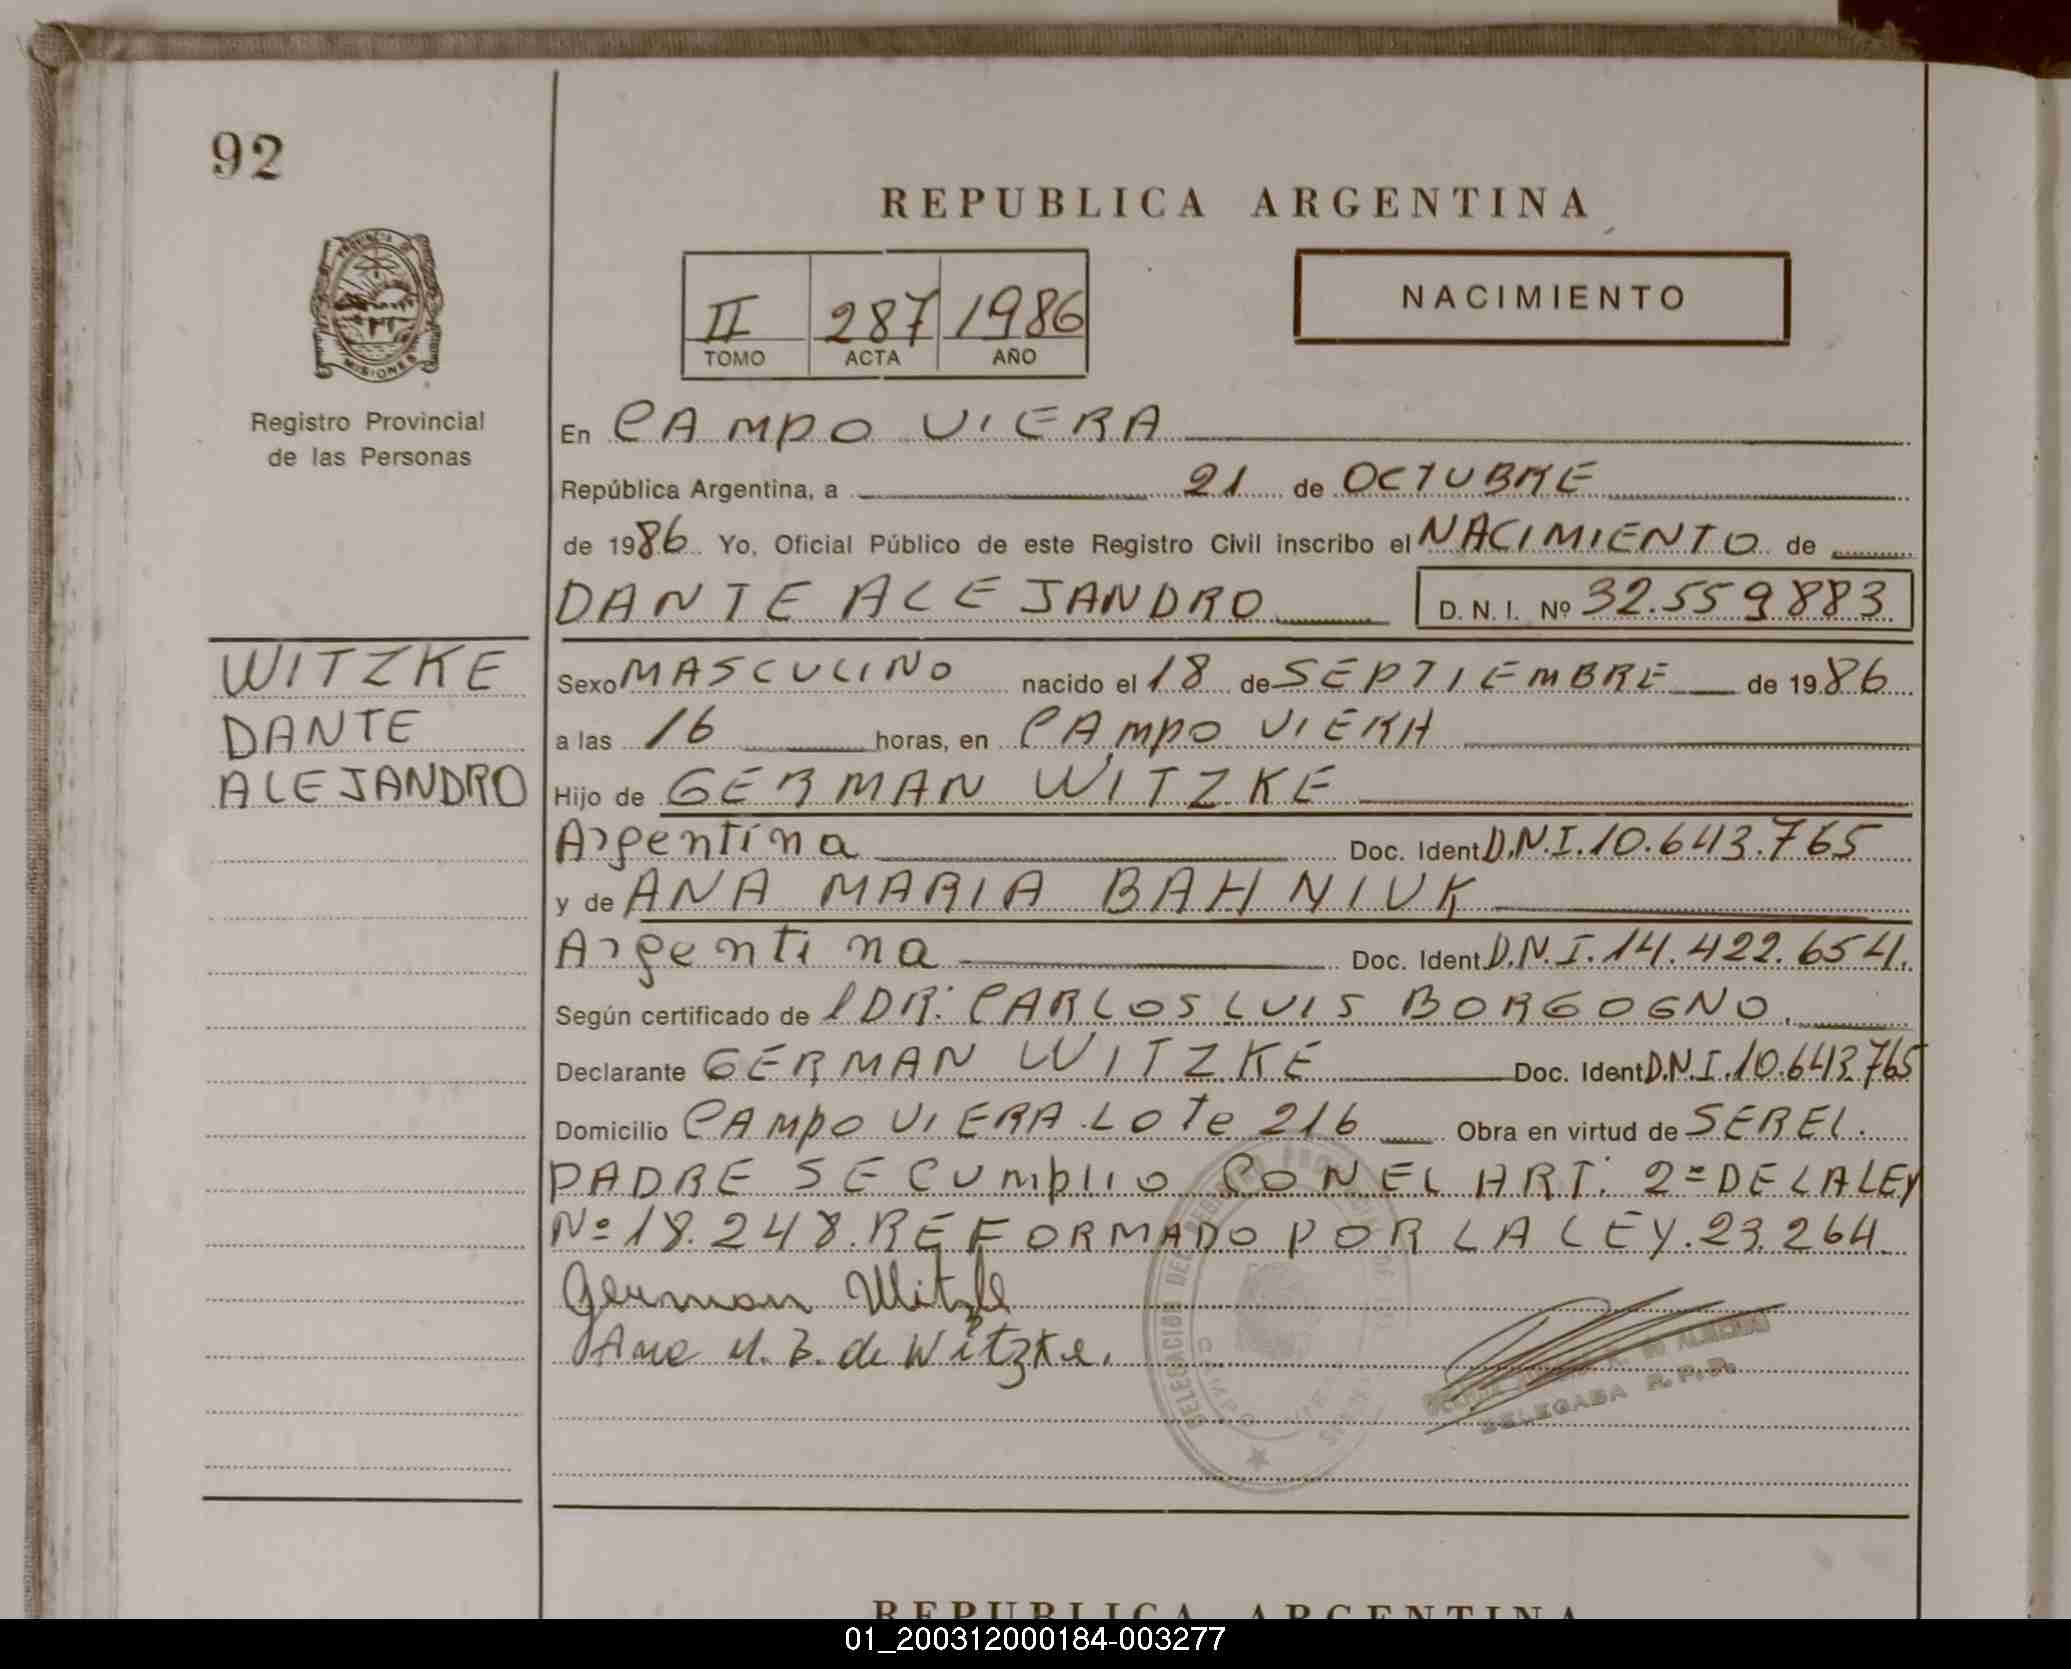 92
REPUBLICA ARGENTINA
II 287 1986
TOMO ACTA AÑO
NACIMIENTO
PROVINCIA DE
MISIONES
Registro Provincial
de las Personas
En CAMPO VIERA
República Argentina, a 21 de OCTUBRE
de 1986 Yo, Oficial Público de este Registro Civil inscribo el NACIMIENTO de
DANTE ALEJANDRO D. N. I. Nº 32.559883
WITZKE
DANTE
ALEJANDRO
Sexo MASCULINO nacido el 18 de SEPTIEMBRE de 1986
a las 16 horas, en CAMPO VIERA
Hijo de GERMAN WITZKE
Argentina Doc. Ident D.N.I.10.643.765
y de ANA MARIA BAHNIUK
Argentina Doc. Ident D.N.I.14.422.654.
Según certificado de l DR. CARLOS LUIS BORGOGNO.
Declarante GERMAN WITZKE Doc. Ident D.N.I.10.643.765
Domicilio CAMPO VIERA LOTe 216 Obra en virtud de SER EL
PADRE SE CUMPLIO CON EL ART. 2º DE LA LEY
Nº 18.248 REFORMADO POR LA LEY.23.264
German Witzke
Ana M. B. de Witzke.
DELEGACION DEL REGISTRO PROVINCIAL DE LAS
CAMPO VIERA
DELEGADA R.P.P.
REPUBLICA ARGENTINA
01_200312000184-003277